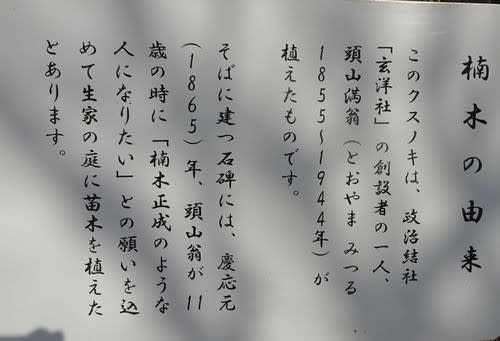 楠木の由来
このクスノキは、政治結社
「玄洋社」の創設者の一人、
頭山満翁(とおやま みつる
1855~1944年)が
植えたものです。
そばに建つ石碑には、慶応元
(1865)年、頭山翁が11
歳の時に「楠木正成のような
人になりたい」との願いを込
めて生家の庭に苗木を植えた
とあります。